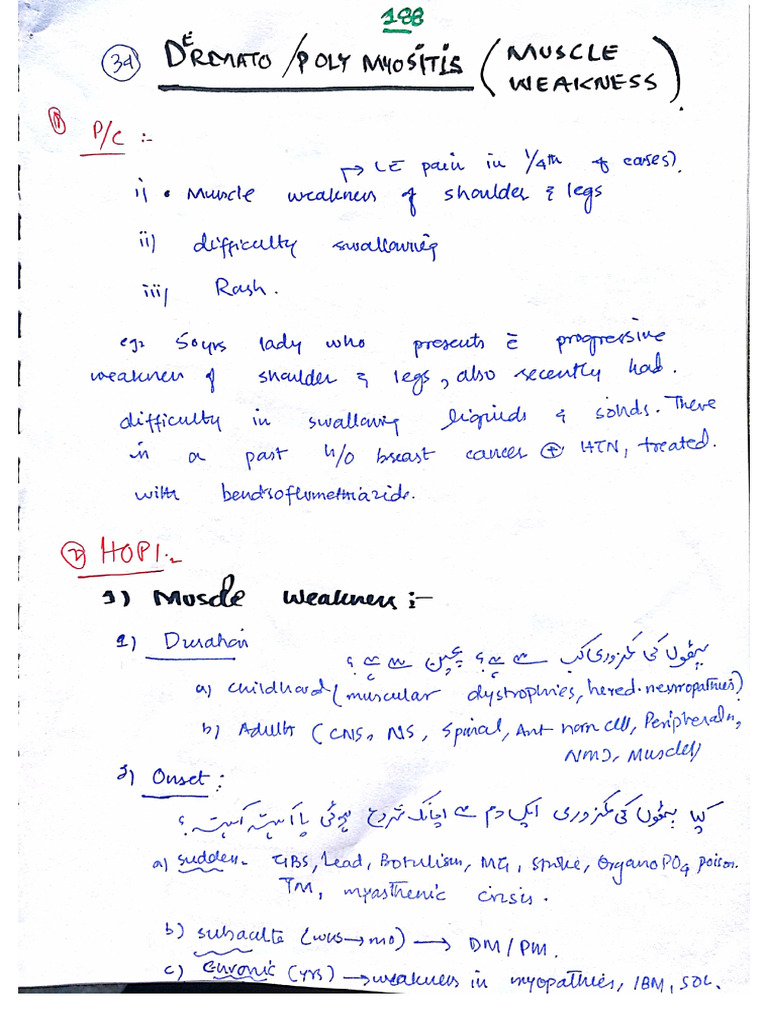 188
39 DERMATO/POLY MYOSITIS (MUSCLE WEAKNESS).
① P/C :-
↱ (E pain in 1/4th of cases).
i) • Muscle weakness of shoulder & legs
ii) difficulty swallowing
iii) Rash.
eg:- 50yrs lady who presents c̄ progressive
weakness of shoulder & legs, also recently had.
difficulty in swallowing liquids & solids. There
is a past h/o breast cancer ⊕ HTN, treated.
with bendroflumethiazide.
② HOPI:-
1) Muscle weakness :-
1) Duration
پٹھوں کی کمزوری کب سے ہے؟ بچپن سے ہے؟
a) childhood (muscular dystrophies, hered. neuropathies)
b) Adult (CNS, NS, Spinal, Ant horn cell, Peripheral n,
NMJ, Muscles)
2) Onset:
کیا پٹھوں کی کمزوری ایک دم سے اچانک شروع ہوئی یا آہستہ آہستہ؟
a) sudden- GBS, Lead, Botulism, MG, stroke, OrganoPO4 poison.
TM, myasthenic crisis.
b) subacute (wks→mo) → DM/PM.
c) Chronic (yrs) → weakness in myopathies, IBM, SOL.